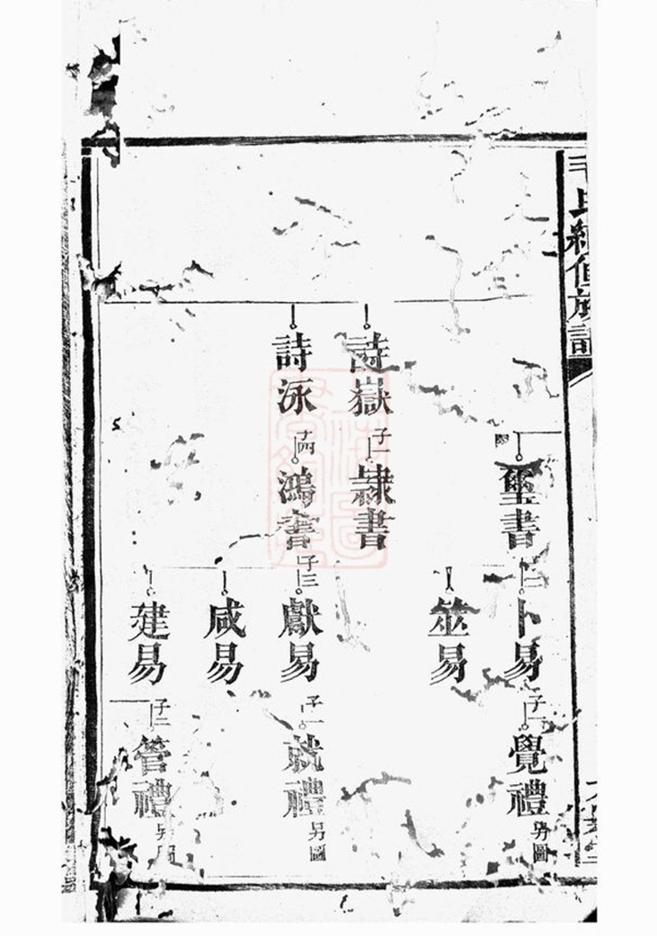 毛氏續修族譜
璽書
卜易 子一 覺禮 另圖
筮易
詩嶽 子一 隸書
詩泳 子四 鴻書 子三 獻易 子一 就禮 另圖
咸易
建易 子二 管禮 另圖